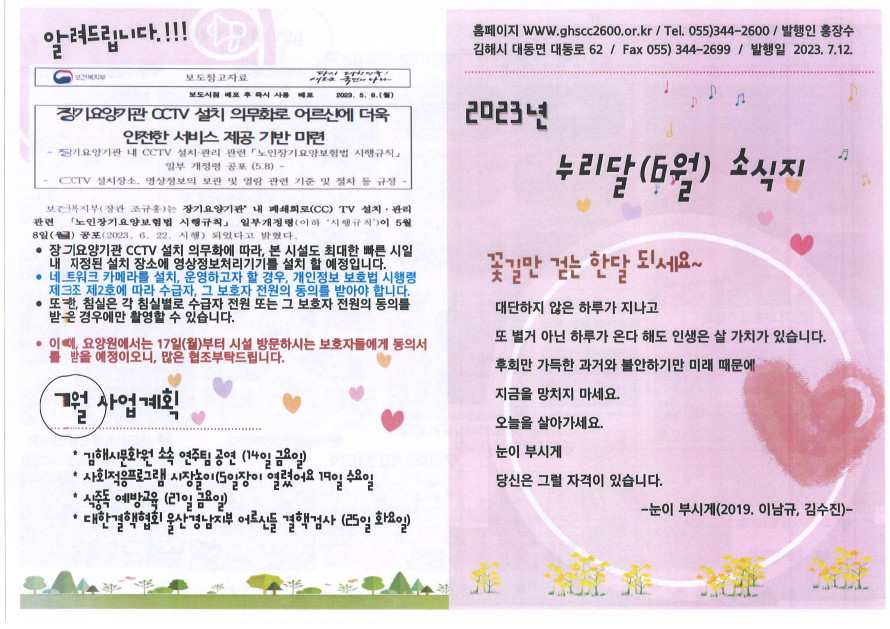 알려드립니다.!!!
보건복지부
보도참고자료
다시 대한민국!
새로운 국민의 나라
보도시점 배포 후 즉시 사용 배포 2023. 5. 8.(월)
장기요양기관 CCTV 설치 의무화로 어르신에 더욱
안전한 서비스 제공 기반 마련
- 장기요양기관 내 CCTV 설치·관리 관련 「노인장기요양보험법 시행규칙」
일부 개정령 공포 (5.8) -
- CCTV 설치장소, 영상정보의 보관 및 열람 관련 기준 및 절차 등 규정 -
보건복지부(장관 조규홍)는 장기요양기관* 내 폐쇄회로(CC) TV 설치·관리
관련 「노인장기요양보험법 시행규칙」 일부개정령(이하 '시행규칙')이 5월
8일(월) 공포(2023. 6. 22. 시행) 되었다고 밝혔다.
• 장기요양기관 CCTV 설치 의무화에 따라, 본 시설도 최대한 빠른 시일
내 지정된 설치 장소에 영상정보처리기기를 설치 할 예정입니다.
• 네트워크 카메라를 설치, 운영하고자 할 경우, 개인정보 보호법 시행령
제 조 제2호에 따라 수급자, 그 보호자 전원의 동의를 받아야 합니다.
• 또한, 침실은 각 침실별로 수급자 전원 또는 그 보호자 전원의 동의를
받은 경우에만 촬영할 수 있습니다.
• 이에, 요양원에서는 17일(월)부터 시설 방문하시는 보호자들에게 동의서
를 받을 예정이오니, 많은 협조부탁드립니다.
7월 사업계획
* 김해시문화원 소속 연주팀 공연 (14일 금요일)
* 사회적응프로그램 시장놀이(5일장이 열렸어요 19일 수요일
* 식중독 예방교육 (21일 금요일)
* 대한결핵협회 울산경남지부 어르신들 결핵검사 (25일 화요일)
홈페이지 WWW.ghscc2600.or.kr / Tel. 055)344-2600 / 발행인 홍장수
김해시 대동면 대동로 62 / Fax 055) 344-2699 / 발행일 2023. 7.12.
2023년
누리달(6월) 소식지
꽃길만 걷는 한달 되세요~
대단하지 않은 하루가 지나고
또 별거 아닌 하루가 온다 해도 인생은 살 가치가 있습니다.
후회만 가득한 과거와 불안하기만 미래 때문에
지금을 망치지 마세요.
오늘을 살아가세요.
눈이 부시게
당신은 그럴 자격이 있습니다.
-눈이 부시게(2019. 이남규, 김수진)-